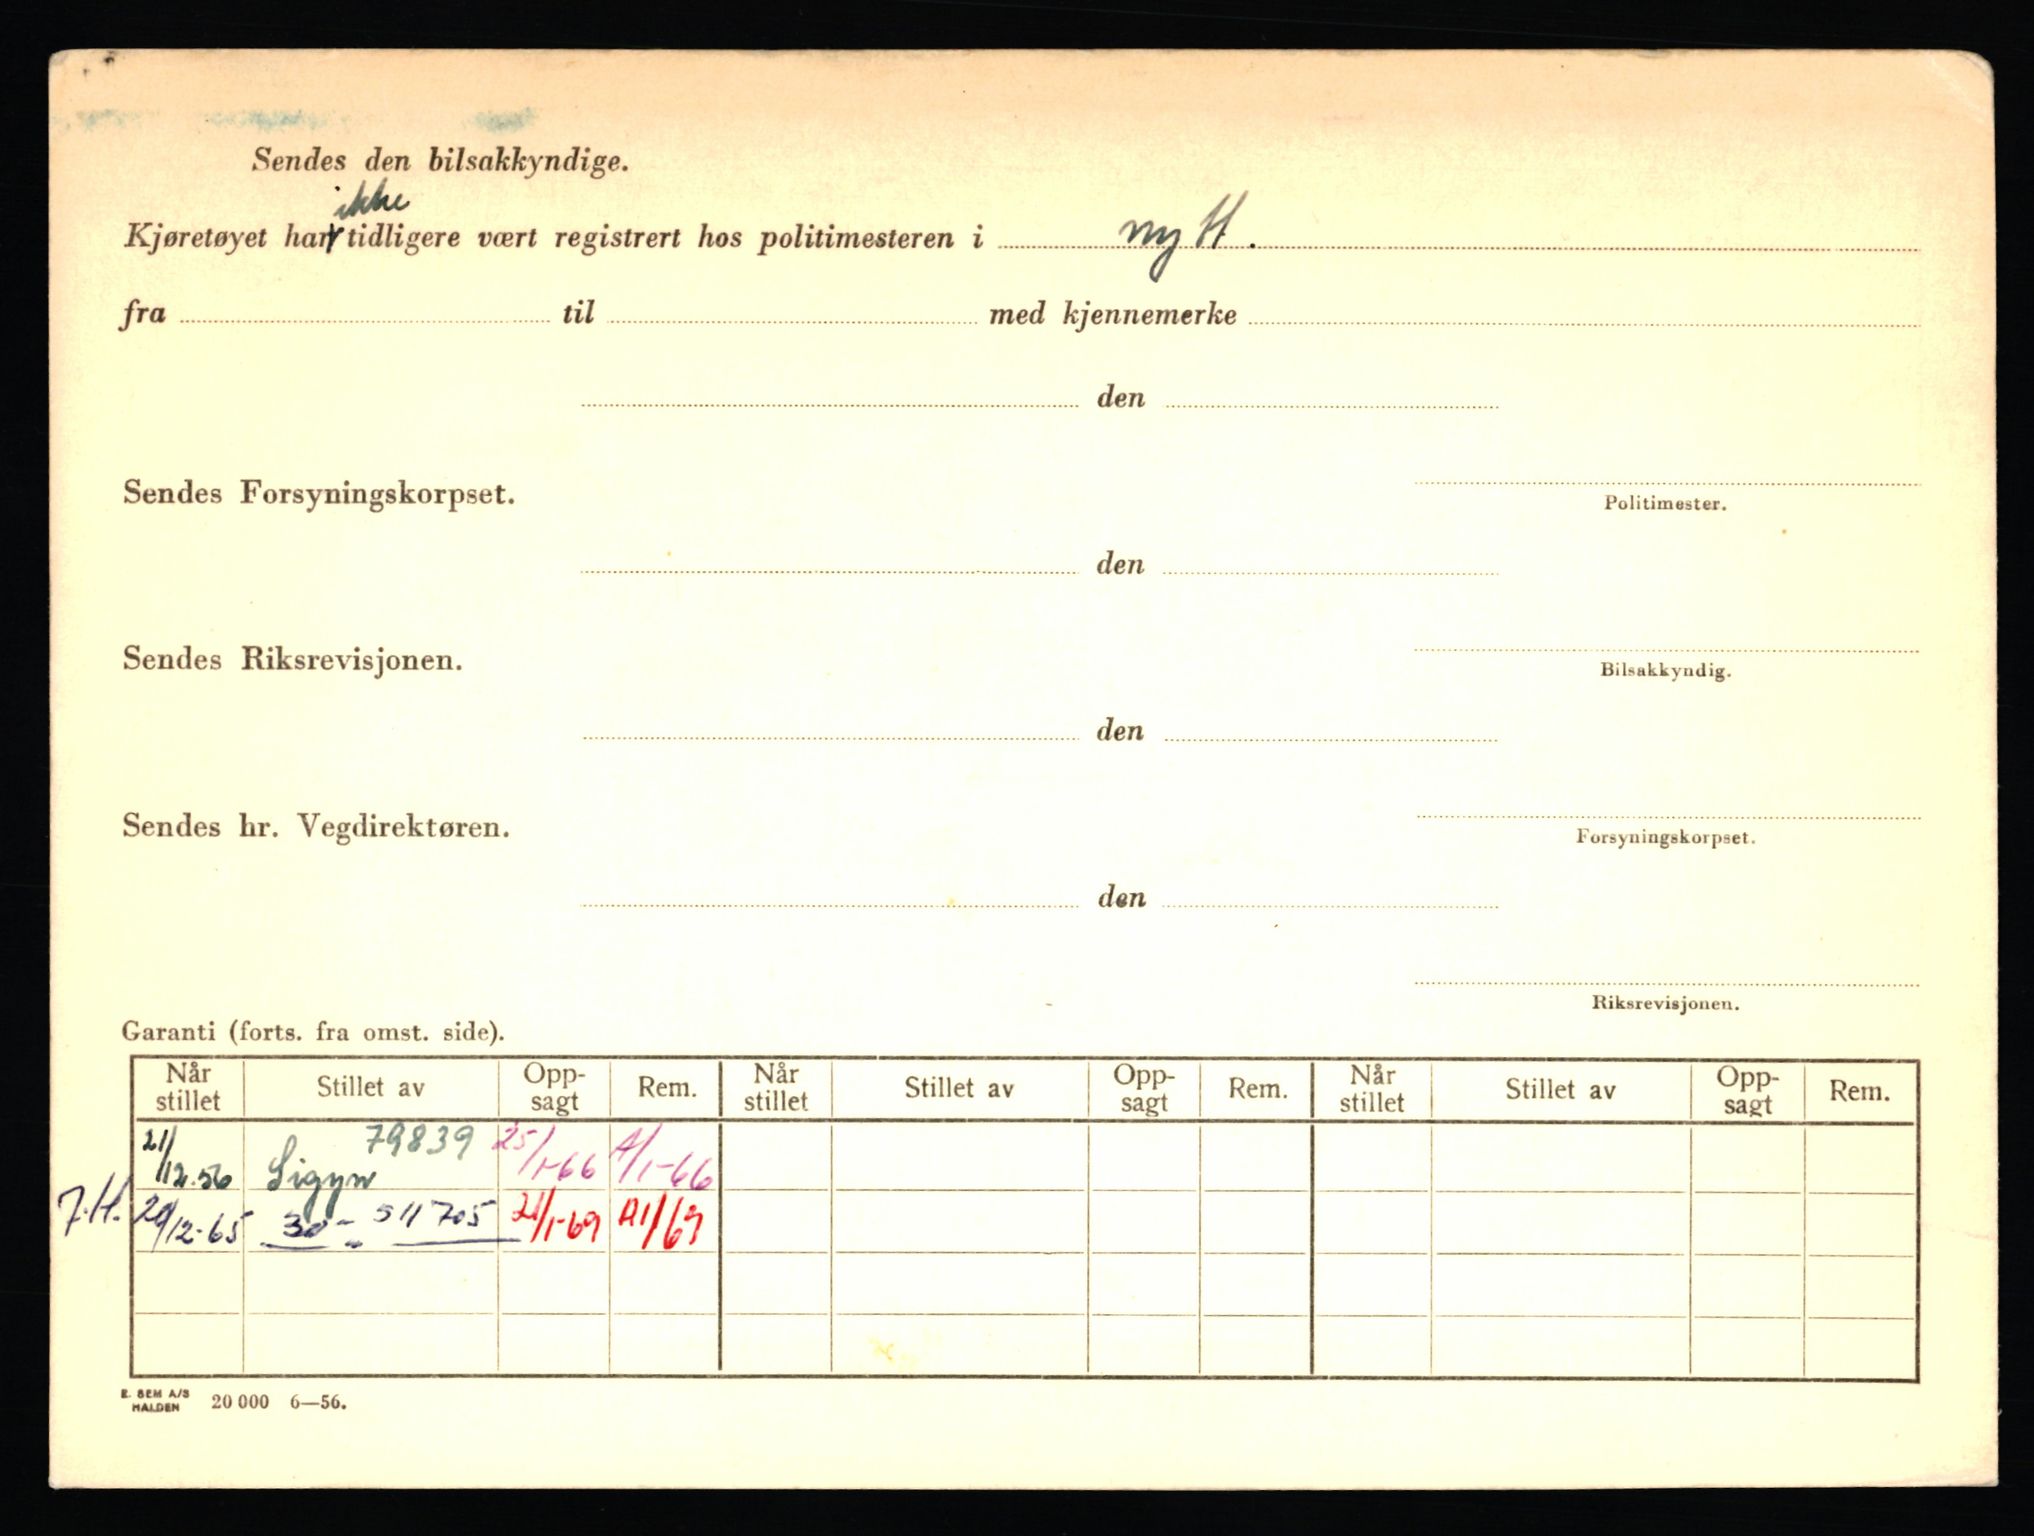 Sendes den bilsakkyndige.
ikke
Kjøretøyet har tidligere vært registrert hos politimesteren i nytt.
fra til med kjennemerke
den
Sendes Forsyningskorpset.
Politimester.
den
Sendes Riksrevisjonen.
Bilsakkyndig.
den
Sendes hr. Vegdirektøren.
Forsyningskorpset.
den
Riksrevisjonen.
Garanti (forts. fra omst. side).
Når stillet Stillet av Opp-sagt Rem. Når stillet Stillet av Opp-sagt Rem. Når stillet Stillet av Opp-sagt Rem.
21/12.56 Sigyn 79839 25/1-66 /1-66
20/12-65 30 - 511705 21/1-69 /69
E. SEM A/S HALDEN 20 000 6—56.